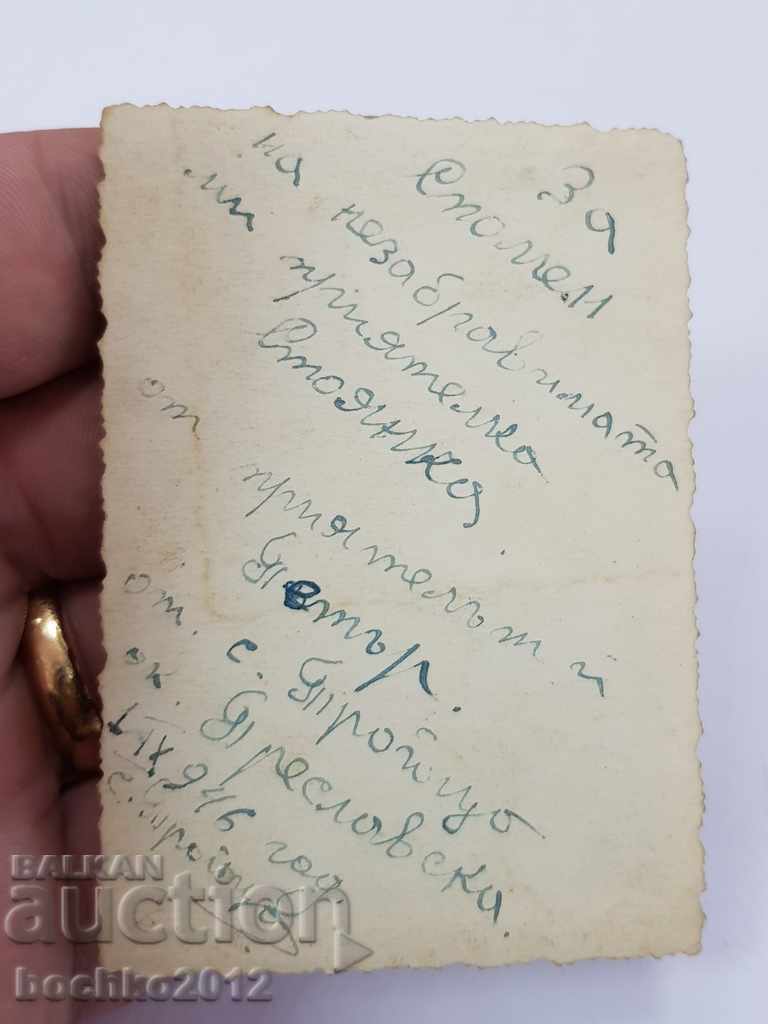 За
Спомен
на незабравимата
ми приятелка
Стоянка.
от приятелът й
Петър.
от. с. Тройца
ок. Преславска.
1 IX 946 год.
с. Тройца
BALKAN
auction
bochko2012